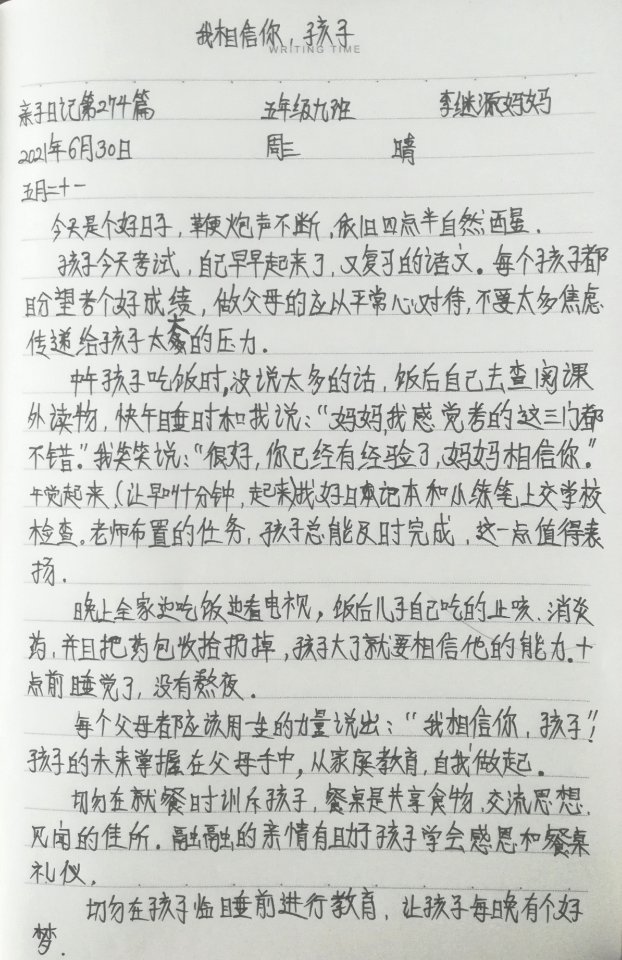 我相信你，孩子
WRITING TIME
亲子日记第274篇 五年级九班 李继源妈妈
2021年6月30日 周三 晴
五月二十一
今天是个好日子，鞭炮声不断，依旧四点半自然醒.
孩子今天考试，自己早早起来了，又复习的语文。每个孩子都
盼望考个好成绩，做父母的应以平常心对待，不要太多焦虑
传递给孩子太大的压力.
中午孩子吃饭时，没说太多的话，饭后自己去查阅课
外读物，快午睡时和我说：“妈妈，我感觉考的这三门都
不错.”我笑笑说：“很好，你已经有经验了，妈妈相信你.”
午觉起来，(让早叫十分钟，起来)找好日记本和小练笔上交学校
检查。老师布置的任务，孩子总能及时完成，这一点值得表
扬.
晚上全家边吃饭边看电视，饭后儿子自己吃的止咳、消炎
药，并且把药包收拾扔掉，孩子大了就要相信他的能力.十
点前睡觉了，没有熬夜.
每个父母都应该用一生的力量说出：“我相信你，孩子”！
孩子的未来掌握在父母手中，从家庭教育，自我做起.
切勿在就餐时训斥孩子，餐桌是共享食物，交流思想，
见闻的佳所.融融的亲情有助于孩子学会感恩和餐桌
礼仪.
切勿在孩子临睡前进行教育，让孩子每晚有个好
梦.